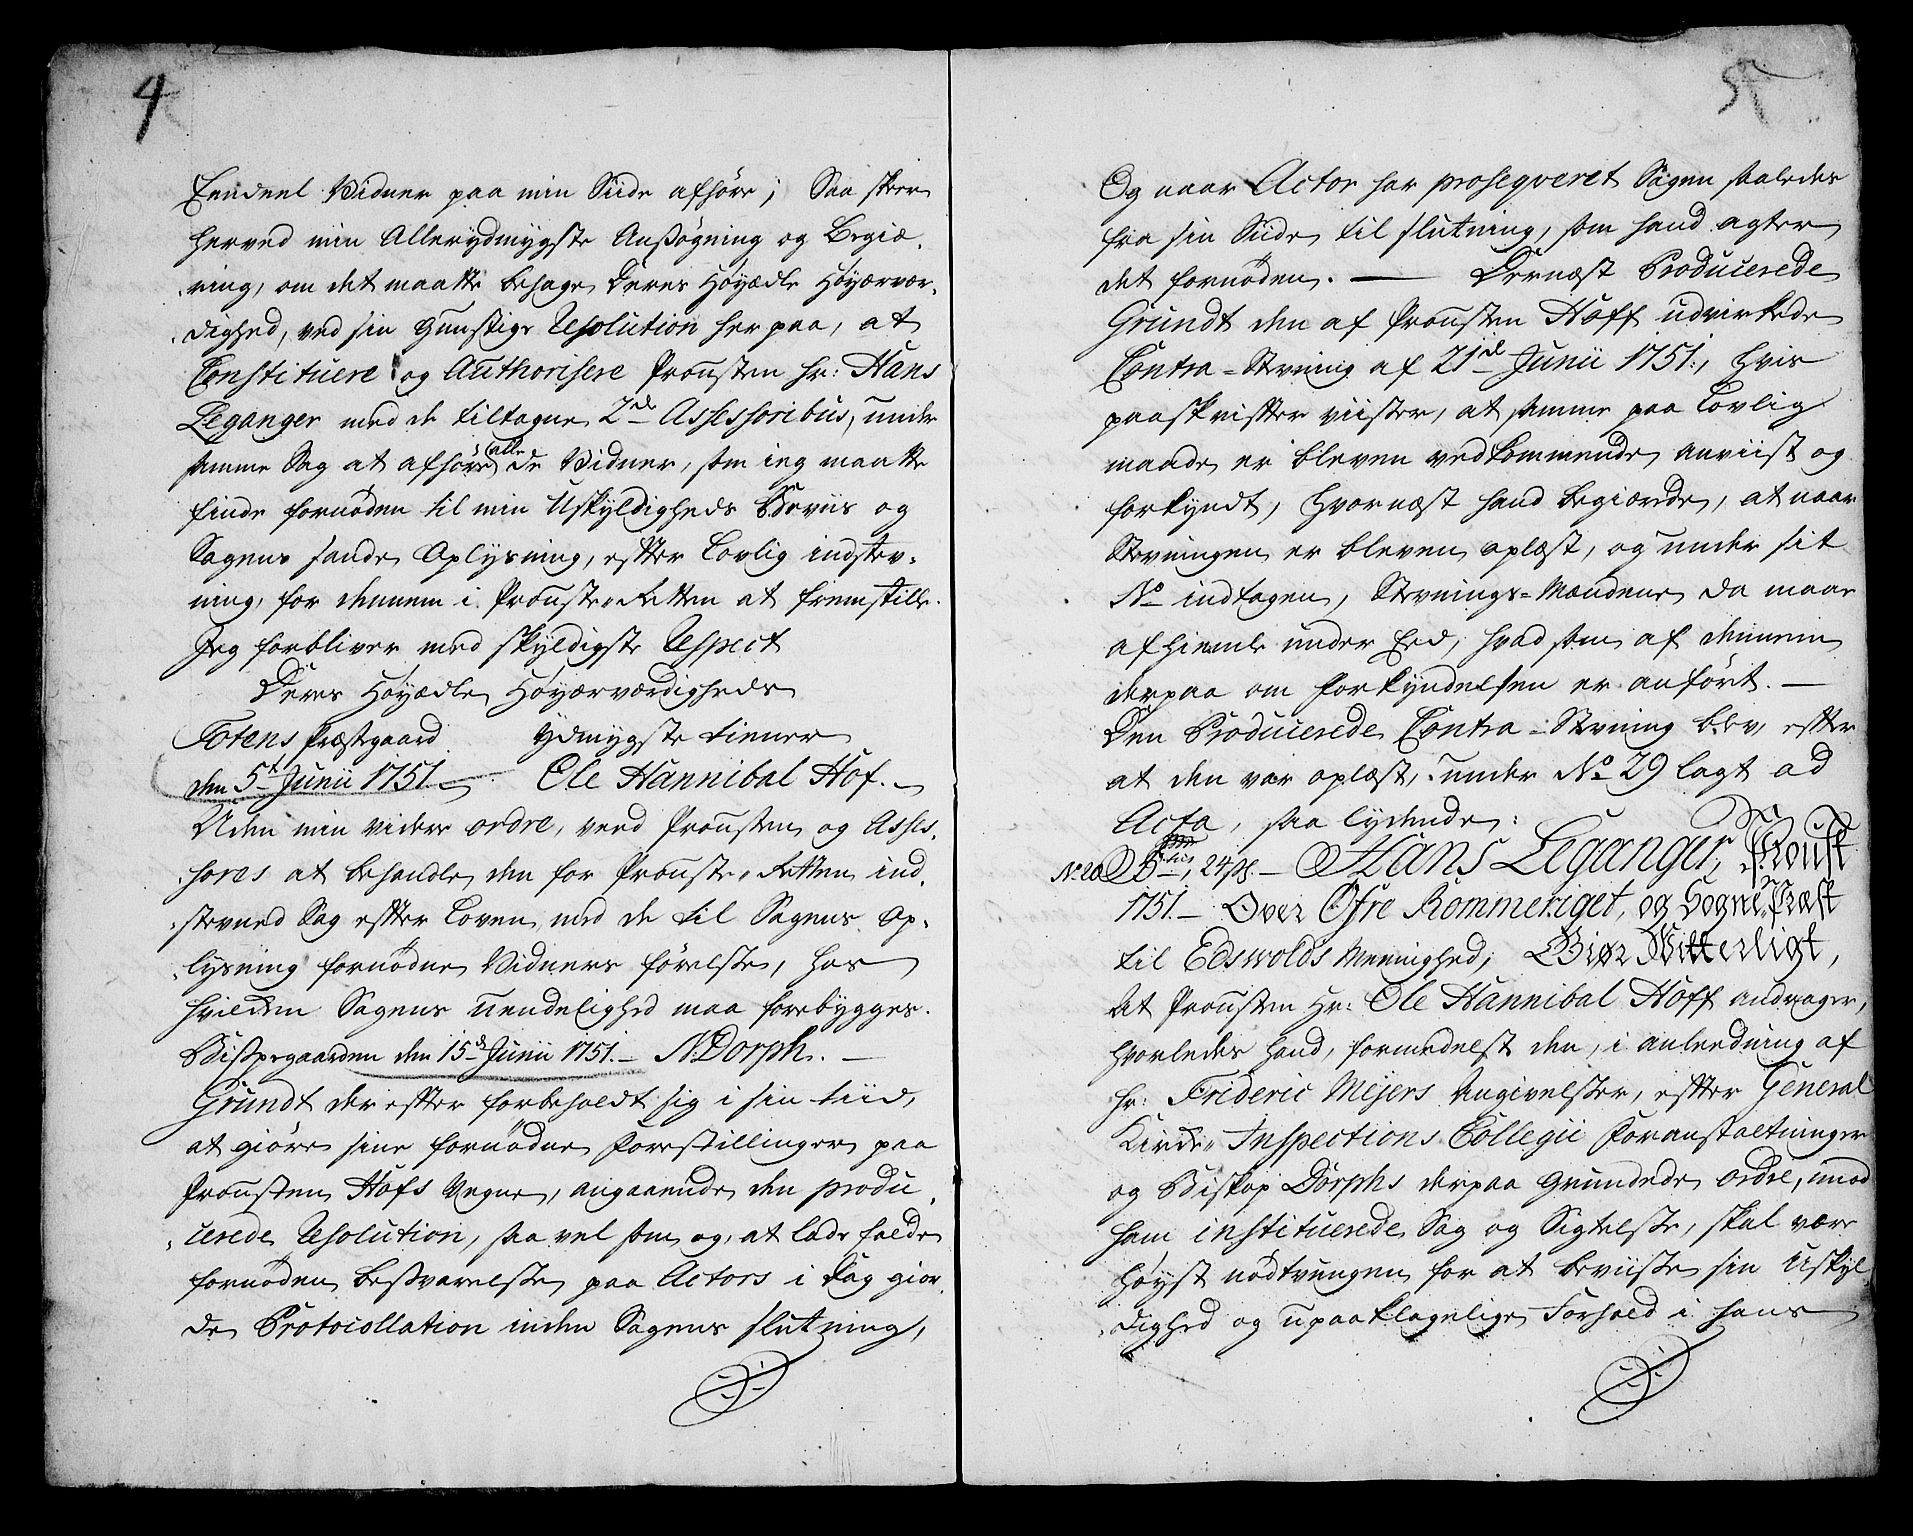 4
Eendeel Vidner paa min Siide afhøre; Saa skeer
herved min Allerydmygste Ansøgning og Begiæ,
ring, om det maatte behage Deres Høyædle Høyærvær,
dighed, ved sin Gunstige Resolution her paa, at
Constituere og Authorisere Prousten hr: Hans
Leganger med de tiltagne 2de Assessoribus, under
samme Sag at afhøre alle de Vidner, som ieg maatte
finde fornøden til min Uskyldigheds Beviis og
Sagens sande Oplysning, efter Lovlig indstev,
ning, for dennem i Prouste-Retten at fremstille.
Jeg forbliver med skyldigste Respect
Deres Høyædle Høyærværdigheds
Totens Præstegaard ydmygste tiener
den 5t Junii 1751. Ole Hannibal Hof.
Uden min videre ordre, veed Prousten og Asses,
sores at behandle den for Prouste-Retten ind,
stevned Sag efter Loven med de til Sagens Op,
lysning fornødne Vidners førelse, hos
hvilken Sagens uendelighed maa forebygges.
Bispegaarden den 15d Junii 1751. N: Dorph.
Grundt der efter forbeholdt sig i sin tiid,
at giøre sine fornødne forestillinger paa
Prousten Hofs Vegne, angaaende den produ,
cerede Resolution, saa vel som og, at lade falde
fornøden besvarelse paa Actors i Dag gior,
de Protocollation inden Sagens slutning,
5
Og naar Actor har proseqveret Sagen saaledes
fra sin Siide til slutning, som hand agter
det fornøden. — Dernæst Producerede
Grundt den af Prousten Hoff udvirkede
Contra-Stevning af 21d Junii 1751., hvis
paaskrifter viiser, at samme paa Lovlig
maade er bleven vedkommende anviist og
forkyndt, hvornæst hand begiærede, at naar
Stevningen er bleven oplæst, og under sit
No indtagen, Stevnings-Mændene da maae
afhiemle under Eed, hvad som af dennem
derpaa om forkyndelsen er anført. —
Den Producerede Contra-Stevning blev, efter
at den var oplæst, under No 29 lagt ad
Acta, saa lydende:
24 s. — Hans Leganger, Proust
1751. — Over Øfre Rommeriget, og Sogne-Præst
til Edswolds Menighed; Giør Witterligt,
At Prousten Hr: Ole Hannibal Hoff andrager,
hvorledes hand, formedelst den, i anleedning af
hr: Frideric Meyers Angivelser, efter General
Kirke-Inspections Collegii foranstaltninger
og Biskop Dorphs derpaa Grundede ordre, imod
ham instituerede Sag og Sigtelse, skal være
høyst nødtvungen for at beviise sin Uskyl
dighed og upaaklagelige Forhold i hans